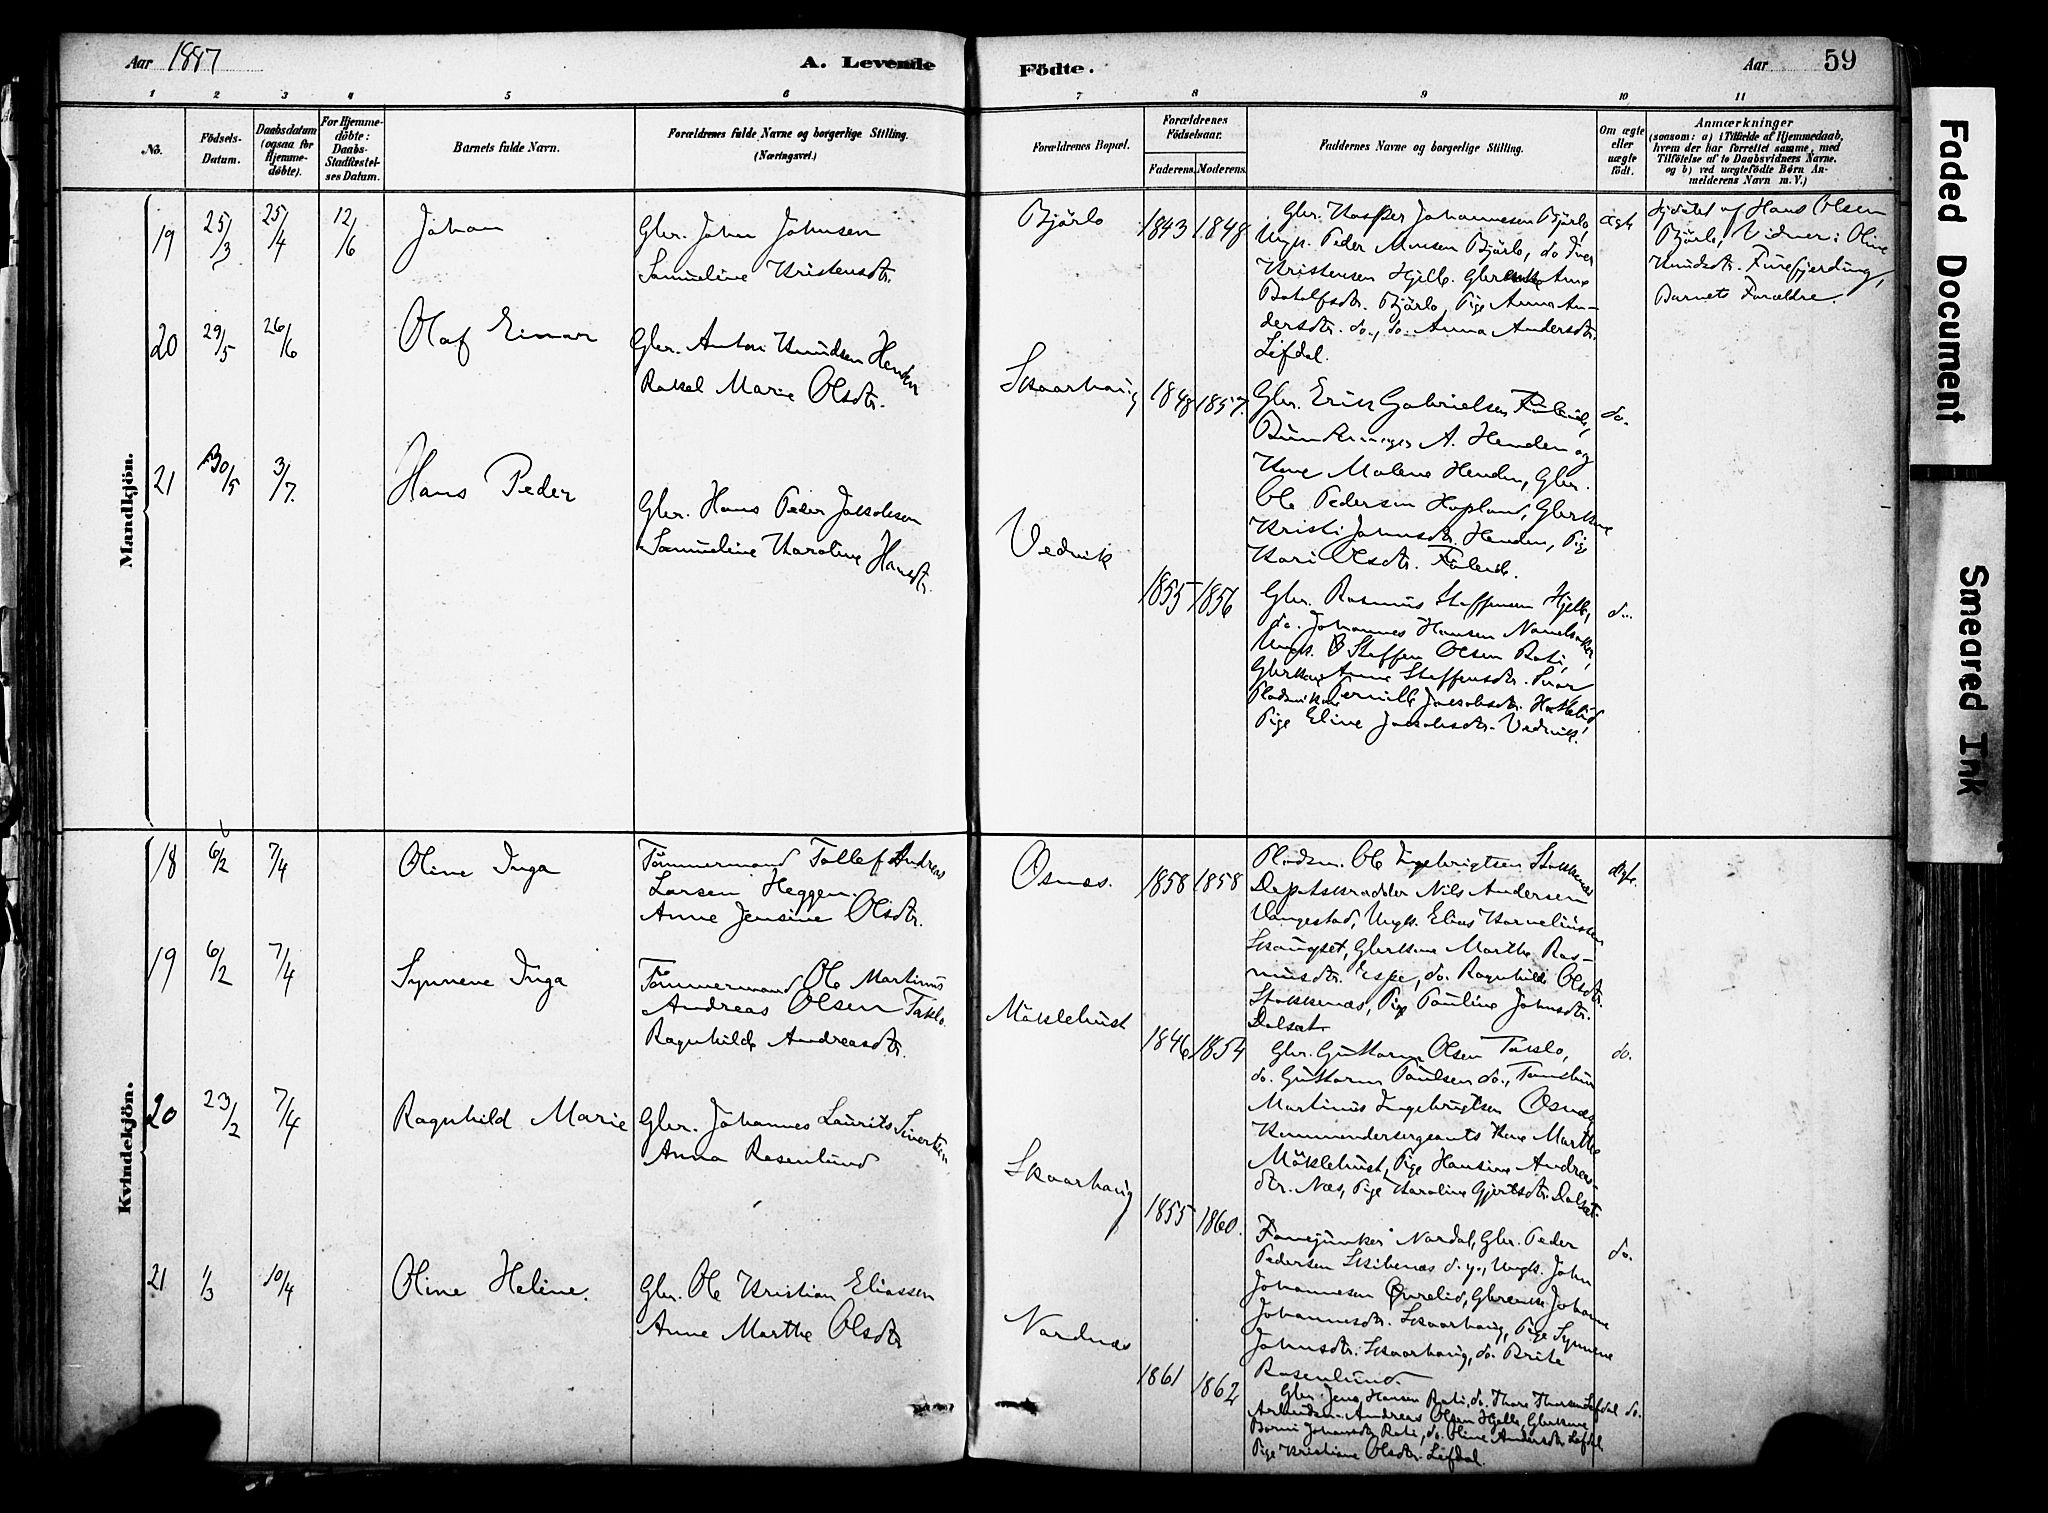 Aar 1887
A. Levende
Födte.
Aar 59
1 2 3 4 5 6 7 8 9 10 11
No.
Födsels-Datum.
Daabsdatum (ogsaa for Hjemme-döbte).
For Hjemme-döbte: Daabs-Stadfæstel-ses Datum.
Barnets fulde Navn.
Forældrenes fulde Navne og borgerlige Stilling.
(Næringsvei.)
Forældrenes Bopæl.
Forældrenes Födselsaar.
Faderens. Moderens.
Faddernes Navne og borgerlige Stilling.
Om ægte eller uægte födt.
Anmærkninger
(saasom: a) i Tilfælde af Hjemmedaab,
hvem der har forrettet samme, med
Tilföielse af to Daabsvidners Navne.
og b) ved uægtefödte Börn An-
melderens Navn m. V.)
Mandkjön.
19 25/3 25/4 12/6 Johan
Gbr. John Johnsen
Samueline Kristensdtr.
Bjørlo 1843 1848
Gbr. Kasper Johannesen Bjørlo,
Ungk. Peder Monsen Bjørlo, do Iver
Kristensen Hjelle. Gbrenke Anne
Botolfsdtr. Bjørlo, Pige Anna An-
dersdtr. do., do. Anna Andersdtr.
Lefdal.
ægte
Hjdøbt af Hans Olsen
Bjørlo, Vidner: Oline
Knudsdtr. Furefjerding,
Barnets Forældre.
20 29/5 26/6 Olaf Einar
Gbr. Anton Knudsen Henden
Rakel Marie Olsdtr.
Skaarhaug 1848 1857.
Gbr. Erik Gabrielsen
A. Henden og
Kone Malene Henden, Gbr.
Ole Pedersen Hopland, Gbrkone
Kristi Johnsdtr. Henden, Pige
Kari Olsdtr.
do.
21 30/5 3/7. Hans Peder
Gbr. Hans Peder Jakobsen
Samueline Karoline Hansdtr.
Vedvik 1855 1856
Gbr. Rasmus Steffensen Hjelle,
do. Johannes Hansen
Ungk. Steffen Olsen Roti,
Gbrkone Anne Steffensdtr.
Pladsmkone Pernille Jakobsdtr.
Pige Eline Jakobsdtr. Vedvik.
do.
Kvindekjön.
18 6/2 7/4 Oline Inga
Tømmermand Tollef Andreas
Larsen Heggen.
Anne Jensine Olsdtr.
Osnæs. 1858 1858
Pladsm. Ole Ingebrigtsen Stokkenæs
Nils Andersen
Vangestad, Ungk. Elias Korneliussen
Skaugset, Gbrkone Marthe Ras-
musdtr. Espe, do. Ragnhilde Olsdtr.
Stokkenæs, Pige Pauline Johnsdtr.
Dalset.
ægte.
19 6/2 7/4 Synneve Inga
Tømmermand Ole Martinus
Andreas Olsen Taklo.
Ragnhilde Andreasdtr.
Møklebust 1846 1854
Gbr. Guttorm Olsen Taklo,
do. Guttorm Paulsen do.,
Martinus Ingebrigtsen Osnæs,
Kommandersergeants Kone Marthe
Møklebust, Pige Hansine Andreas-
dtr. Næs, Pige Karoline Gjertsdtr. Dalset.
do.
20 23/2 7/4 Ragnhild Marie
Gbr. Johannes Laurits Sivertsen
Anna Rosenlund
Skaarhaug 1855 1860.
Fanejunker Nordal, Gbr. Peder
Pedersen Skibenæs d.y., Ungk. John
Johannesen Ørelid, Gbrenke Johanne
Johannesdtr. Skaarhaug, Pige Synneve
Johnsdtr. Skaarhaug, do. Brite
Rosenlund.
do.
21 1/3 10/4 Oline Heline.
Gbr. Ole Kristian Eliassen
Anne Marthe Olsdtr
Nordnæs 1861 1862
Gbr. Jens Hansen Roti, do. Thore Thoresen Lefdal
Andreas Olsen Hjelle, Gbrkone
Johansdtr. Roti, do. Oline Andersdtr. Lefdal
Pige Kristiane Olsdtr. Lefdal.
do.
Faded Document
Smeared Ink